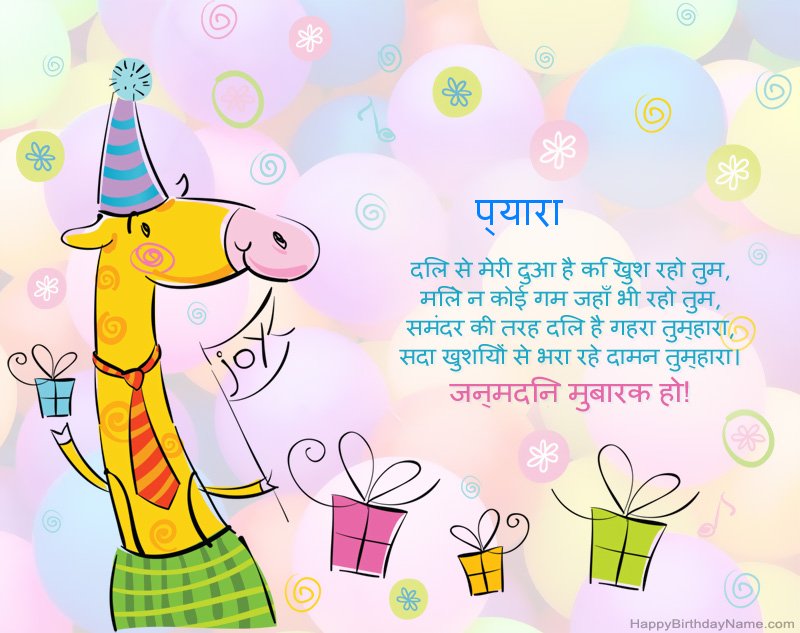 प्यारा
दिल से मेरी दुआ है कि खुश रहो तुम,
मिले न कोई गम जहाँ भी रहो तुम,
समंदर की तरह दिल है गहरा तुम्हारा,
सदा खुशियों से भरा रहे दामन तुम्हारा।
जन्मदिन मुबारक हो!
joy
HappyBirthdayName.com